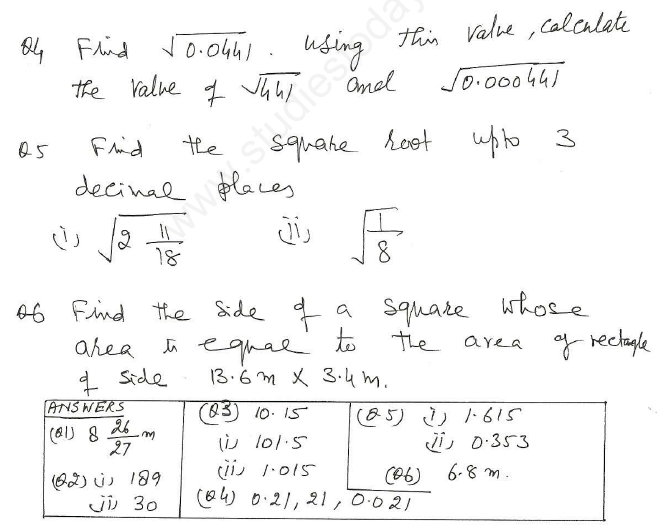 Q4 Find √0.0441 . Using this value, calculate
the value of √441 and √0.000441
Q5 Find the square root upto 3
decimal places
(i) √2 11/18 (ii) √1/8
Q6 Find the side of a square whose
area is equal to the area of rectangle
of side 13.6 m X 3.4 m.
ANSWERS
(Q1) 8 26/27 m
(Q2) (i) 189
(ii) 30
(Q3) 10.15
(i) 101.5
(ii) 1.015
(Q4) 0.21, 21, 0.021
(Q5) (i) 1.615
(ii) 0.353
(Q6) 6.8 m.
www.studiestoday